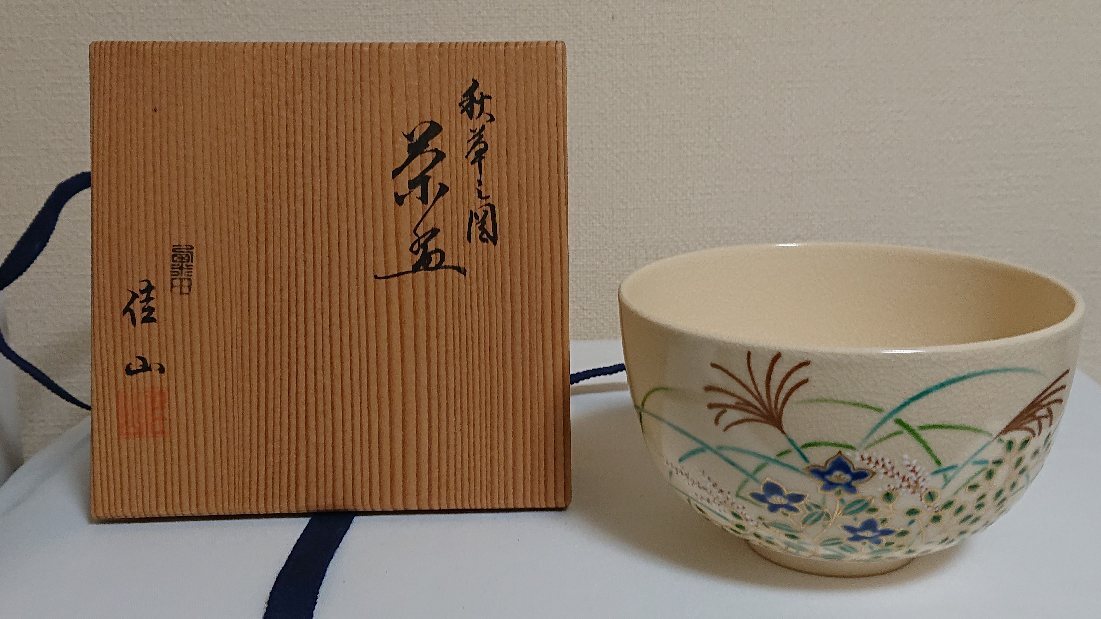 秋草之図
茶盌
佳山